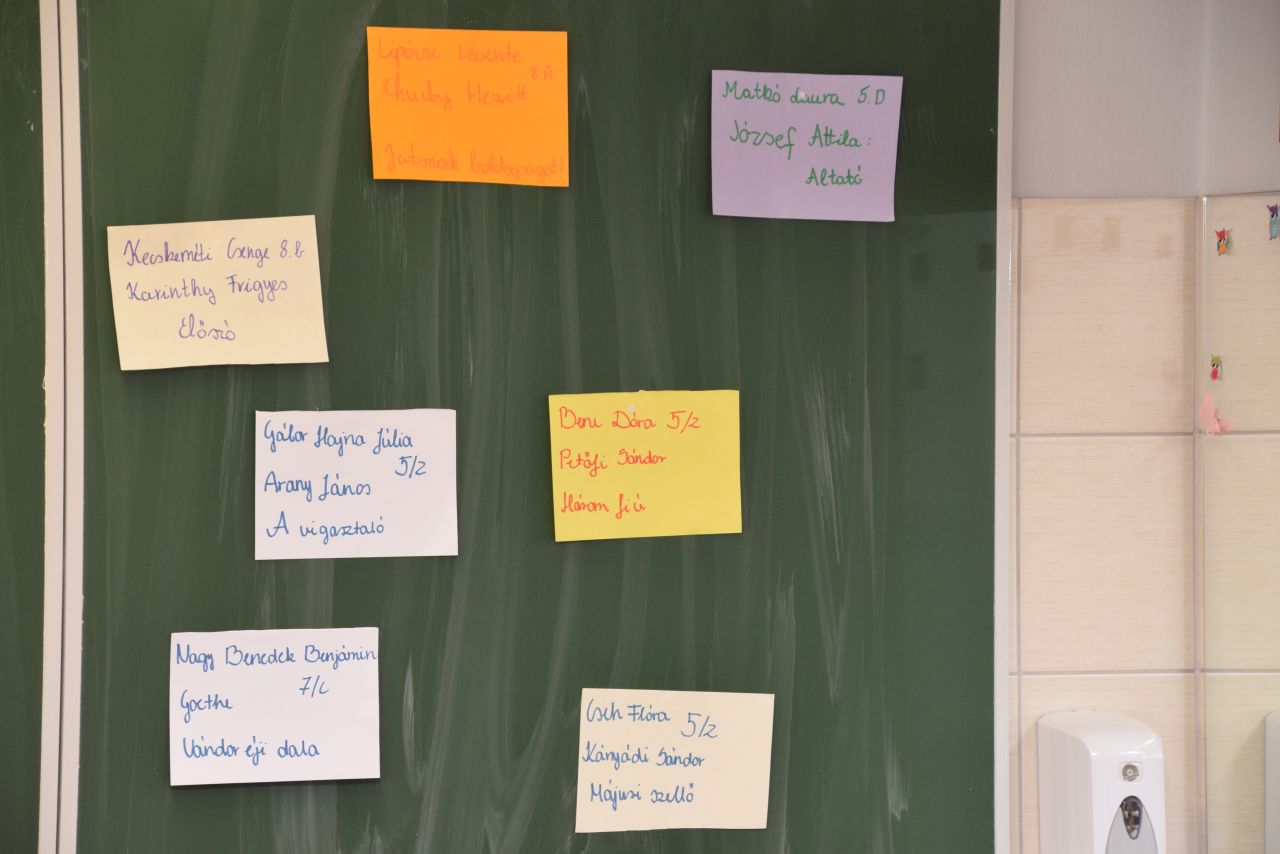 Lipóczi Levente
8.A
Chudy Hewett
Játsszunk boldogságot!
Matkó Laura 5.D
József Attila:
Altató
Kecskeméti Csenge 8.b
Karinthy Frigyes
Előszó
Gábor Hajna Júlia
5/z
Arany János
A vigasztaló
Bene Dóra 5/z
Petőfi Sándor
Három fiú
Nagy Benedek Benjámin
7/c
Goethe
Vándor éji dala
Cseh Flóra 5/z
Kányádi Sándor
Májusi szellő